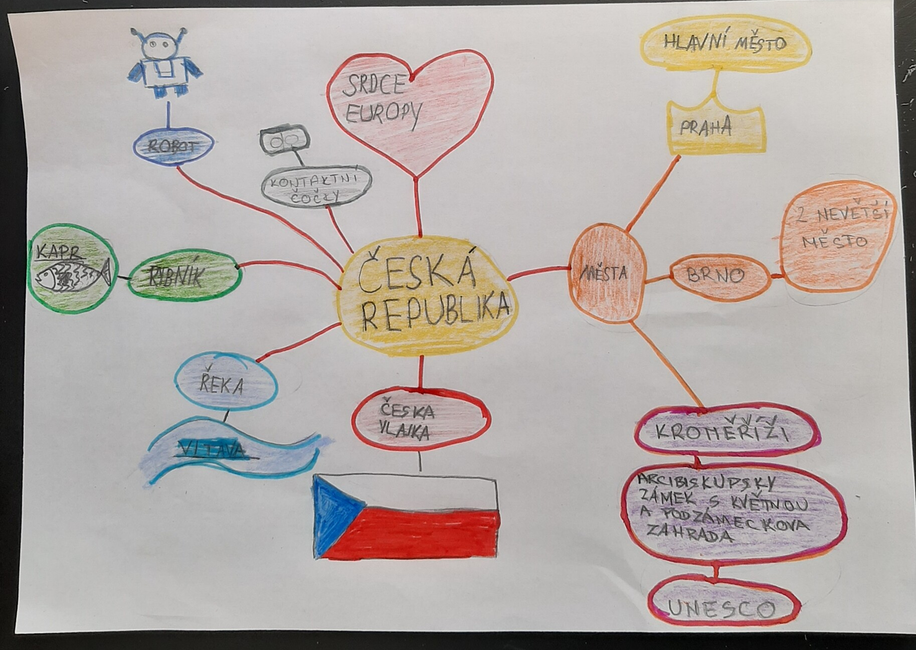 HLAVNÍ MĚSTO
SRDCE
EUROPY
PRAHA
ROBOT
KONTAKTNÍ
ČOČKY
2 NEVĚTŠÍ
MĚSTO
KAPR
RIBNÍK
ČESKÁ
REPUBLIKA
MĚSTA
BRNO
ŘEKA
ČESKA
VLAJKA
VLTAVA
KROMĚŘÍŽI
ARCIBISKUPSKY
ZÁMEK S KVĚTNOU
A PODZÁMECKOVA
ZAHRADA
UNESCO